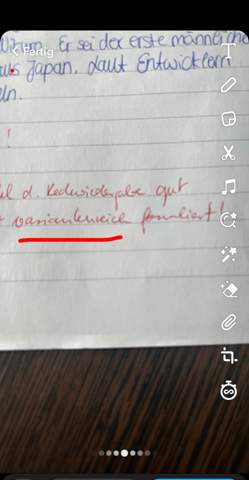 Fertig
Er sei der erste männliche
aus Japan. Laut Entwicklern
eln.
!
d. Redewiedergabe gut
variantenreich formuliert!